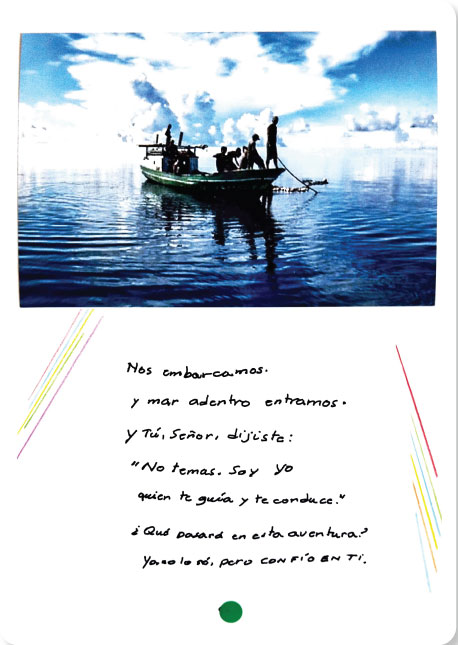 Nos embarcamos.
y mar adentro entramos.
y Tú, Señor, dijiste:
"No temas. Soy yo
quien te guía y te conduce."
¿Qué pasará en esta aventura?
Yo no lo sé, pero CONFÍO EN TI.